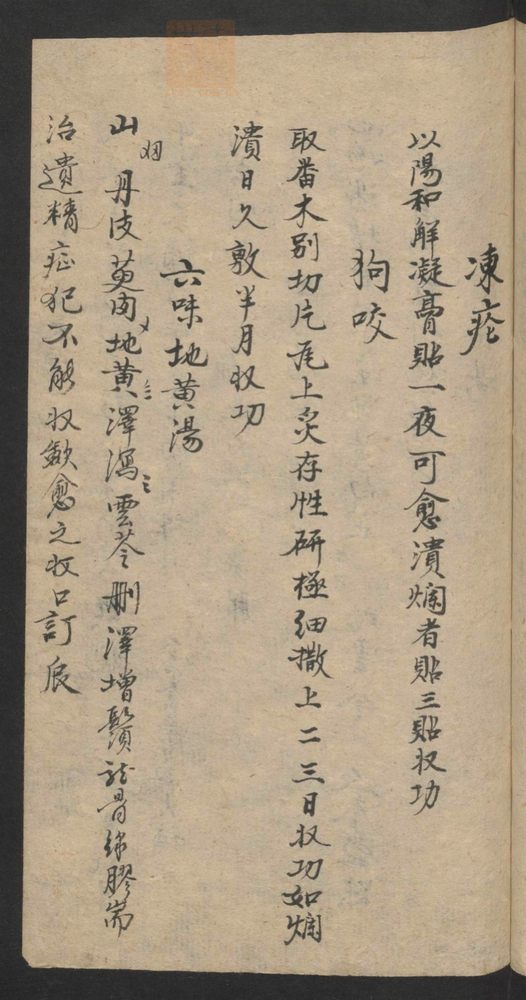 凍瘡
以陽和解凝膏貼一夜可愈潰爛者貼三貼收功
狗咬
取番木别切片瓦上炙存性研極细撒上二三日收功如爛
潰日久敷半月收功
六味地黄湯
山丹皮萸肉地黄澤瀉雲苓删澤增鬚龍骨線膠
治遺精症犯不能收歛愈之收口訂辰